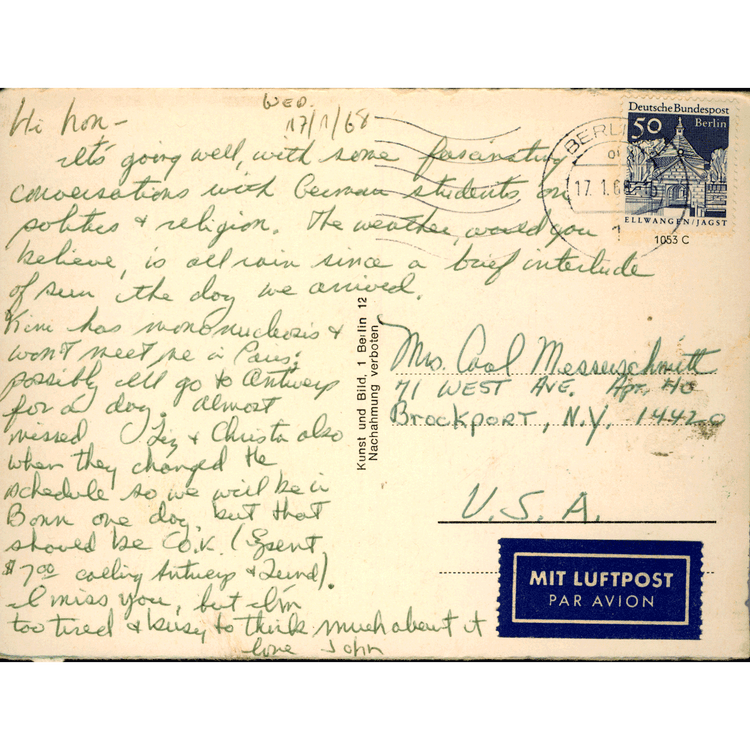 WED.
17/1/68
Hi hon-
It's going well, with some fascinating
conversations with German students on
politics & religion. The weather, would you
believe, is all rain since a brief interlude
of sun the day we arrived.
Kimi has mononucleosis &
won't meet me in Paris;
possibly I'll go to Antwerp
for a day. Almost
missed Liz & Christa also
when they changed the
schedule so we will be in
Bonn one day, but that
should be O.K. (Spent
$7.00 calling Antwerp & Zund).
I miss you, but I'm
too tired & busy to think much about it
love John
Kunst und Bild, 1 Berlin 12
Nachahmung verboten
Deutsche Bundespost
50 Berlin
ELLWANGEN/JAGST
1053 C
BERLIN
17.1.68-16
1
Mrs. Carol Messerschmitt
71 WEST AVE. Apt.
Brockport, N.Y. 14420
U.S.A.
MIT LUFTPOST
PAR AVION